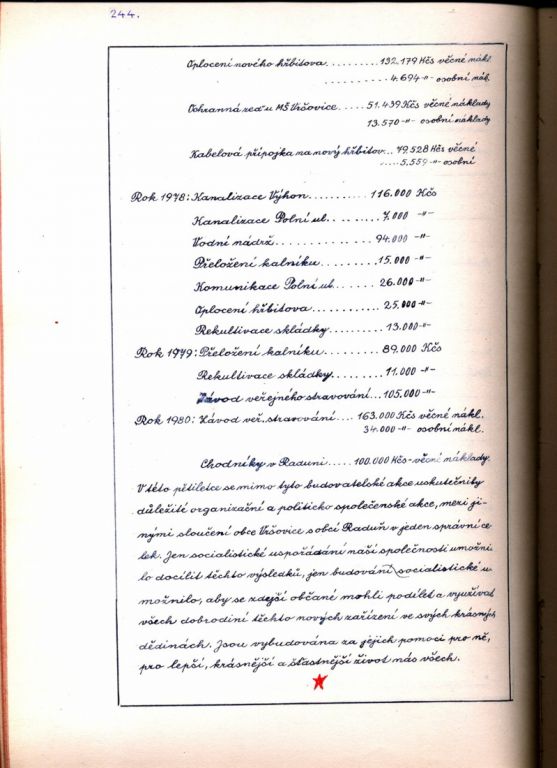 244.
Oplocení nového hřbitova.........132.179 Kčs věcné nákl.
............4.694 -"- osobní nák.
Ochranná zeď u MŠ Vršovice.....51.439 Kčs věcné náklady
13.570 -"- osobní náklady
Kabelová přípojka na nový hřbitov...79.528 Kčs věcné
.....5.559 -"- osobní
Rok 1978: Kanalizace Výkon..........116.000 Kčs
Kanalizace Polní ul.........7.000 -"-
Vodní nádrž...............94.000 -"-
Přeložení kalníku..........15.000 -"-
Komunikace Polní ul.......26.000 -"-
Oplocení hřbitova...........25.000 -"-
Rekultivace skládky.........13.000 -"-
Rok 1979: Přeložení kalníku.........89.000 Kčs
Rekultivace skládky........11.000 -"-
Závod veřejného stravování...105.000 -"-
Rok 1980: Závod veř. stravování....163.000 Kčs věcné nákl.
34.000 -"- osobní nákl.
Chodníky v Raduni.....100.000 Kčs-věcné náklady.
V této pětiletce se mimo tyto budovatelské akce uskutečnily
důležité organizační a politicko společenské akce, mezi ji-
nými sloučení obce Vršovice s obcí Raduň v jeden správní ce
lek. Jen socialistické uspořádání naší společnosti umožni
lo docílit těchto výsledků, jen budování socialistické u
možnilo, aby se zdejší občané mohli podílet a využívat
všech dobrodiní těchto nových zařízení ve svých krásných
dědinách. Jsou vybudována za jejich pomoci pro ně,
pro lepší, krásnější a šťastnější život nás všech.